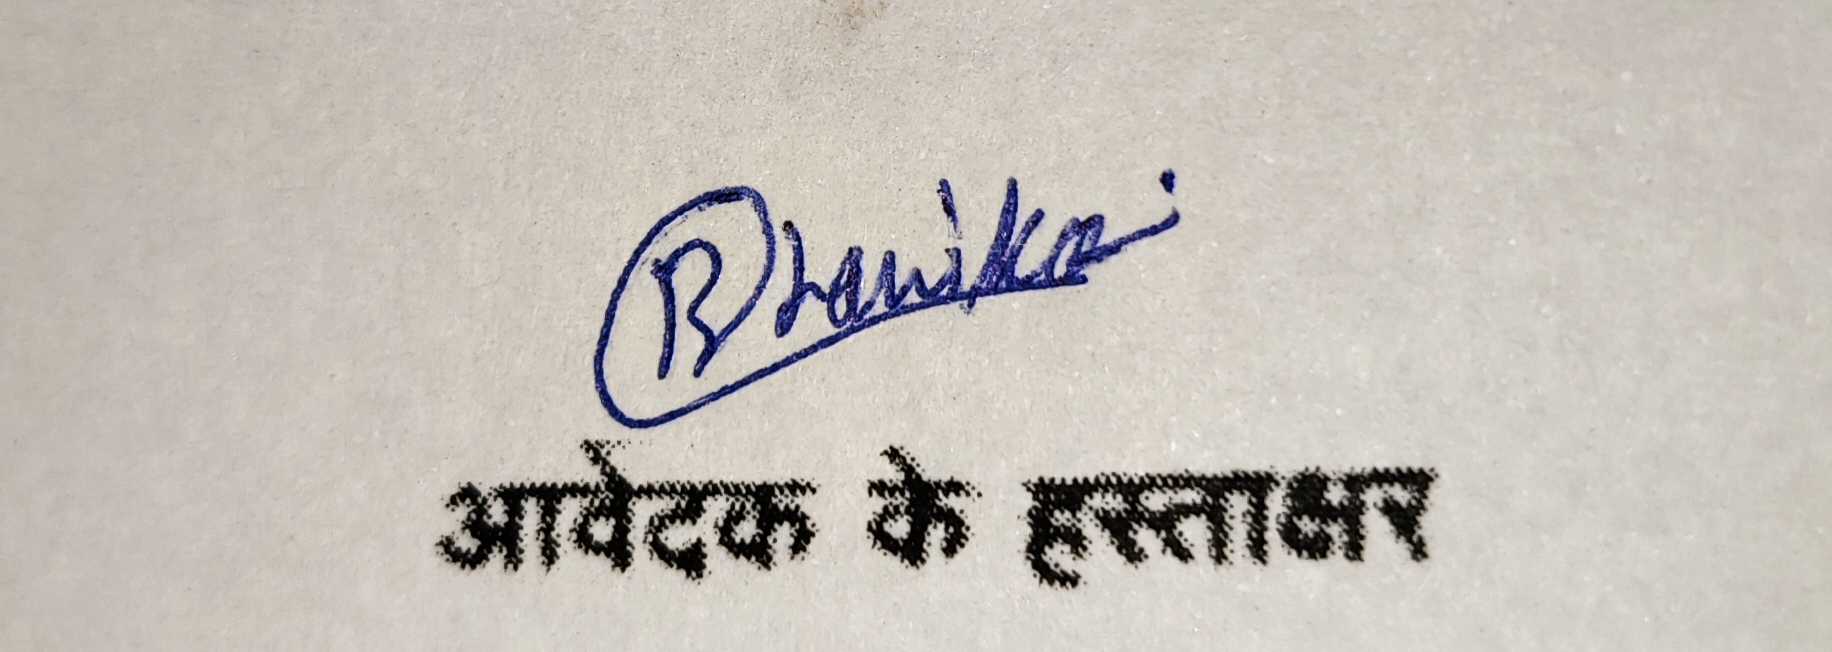 Bhavika
आवेदक के हस्ताक्षर